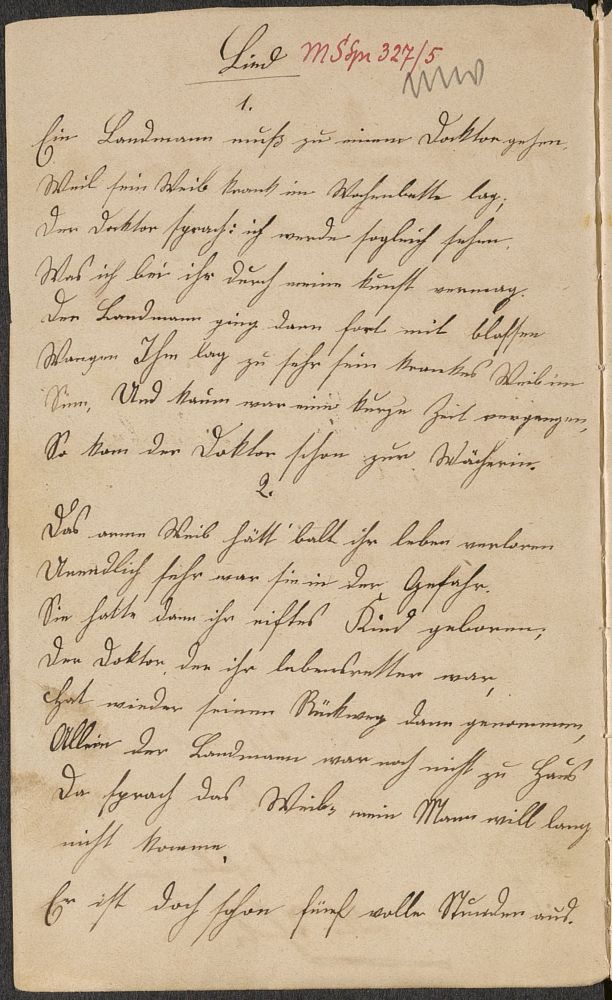 Lied MSSpr 327/5
1.
Ein Landmann muß zu einem Docktor gehen,
Weil sein Weib krank im Wochenbette lag;
Der Docktor sprach: ich werde sogleich sehen,
Was ich bei ihr durch meine Kunst vermag.
Der Landmann ging dann fort mit blassen
Wangen Ihm lag zu sehr sein krankes Weib im
Sinn, Und kaum war eine kurze Zeit vergangen,
So kam der Doktor schon zur Wöcherin.
2.
Das arme Weib hätt balt ihr leben verloren
Unendlich sehr war sie in der Gefahr.
Sie hatte dann ihr eiftes Kind geboren,
Der Doktor, der ihr lebensretter war,
Hat wieder seinen Rückweg dann genommen,
Allein der Landmann war noch nicht zu Haus
Da sprach das Weib: mein Mann will lang
nicht komme,
Er ist doch schon fünf volle Stunden aus.